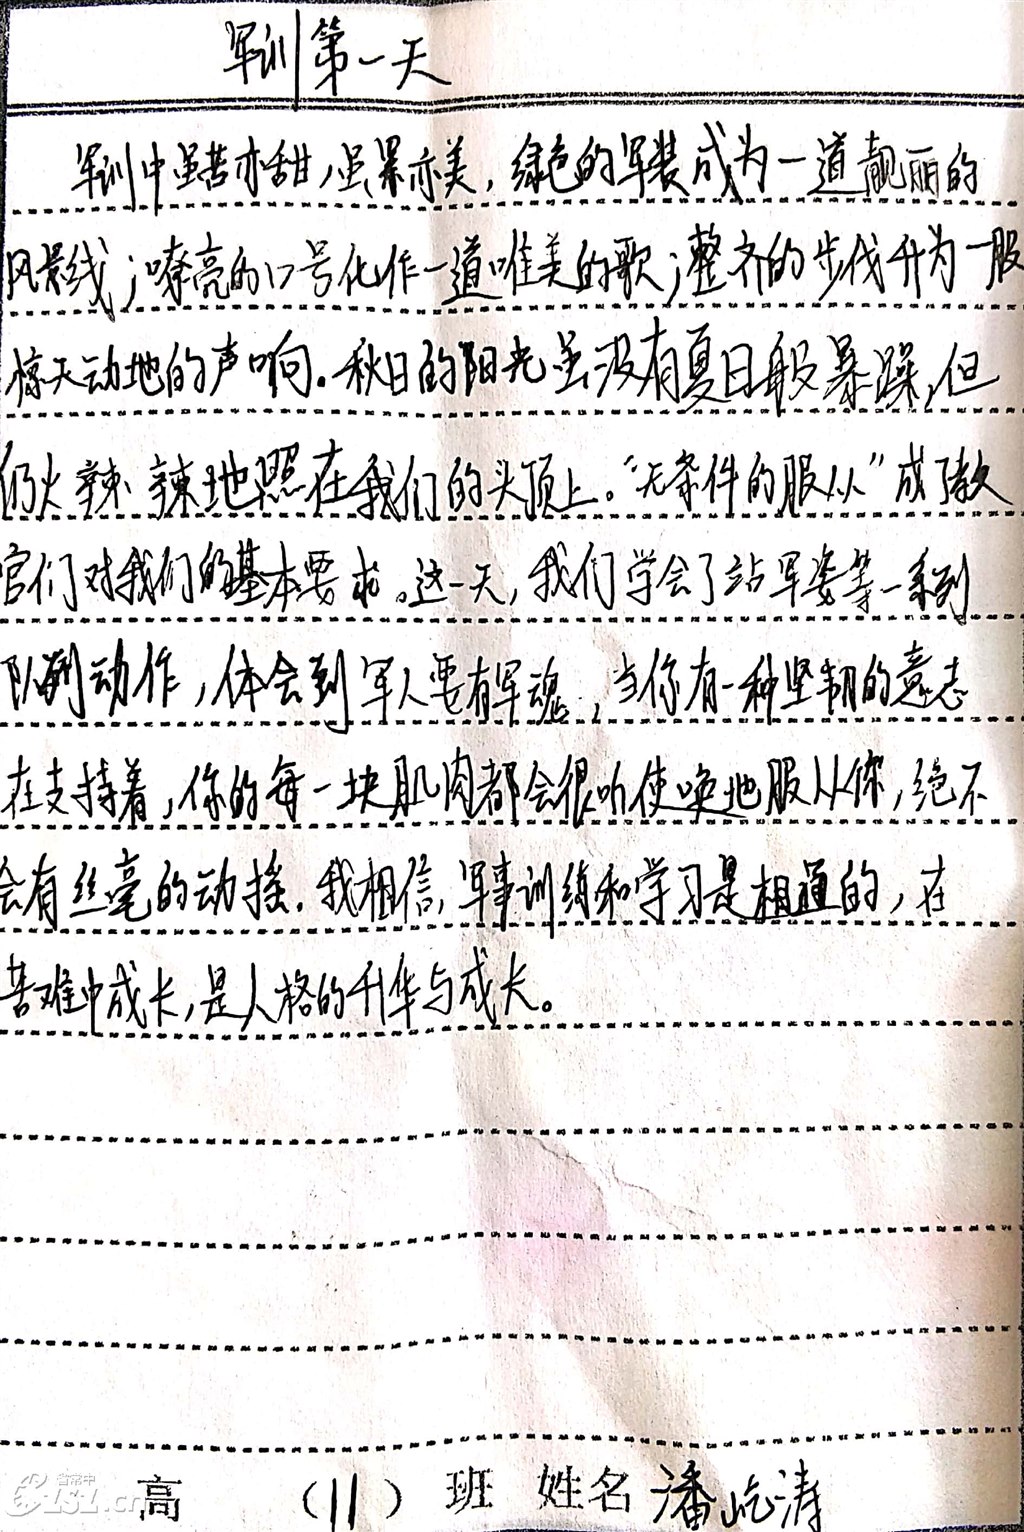 军训第一天
军训中虽苦亦甜,虽累亦美,绿色的军装成为一道靓丽的
风景线;嘹亮的口号化作一道唯美的歌;整齐的步伐升为一股
惊天动地的声响。秋日的阳光虽没有夏日般暴躁,但
仍火辣辣地照在我们的头顶上。“无条件的服从”成了教
官们对我们的基本要求。这一天,我们学会了站军姿等一系列
队列动作,体会到军人要有军魂,当你有一种坚韧的意志
在支持着,你的每一块肌肉都会很听使唤地服从你,绝不
会有丝毫的动摇。我相信,军事训练和学习是相通的,在
苦难中成长,是人格的升华与成长。
高 (11) 班 姓名 潘屹涛
省常中
LSZ.cn